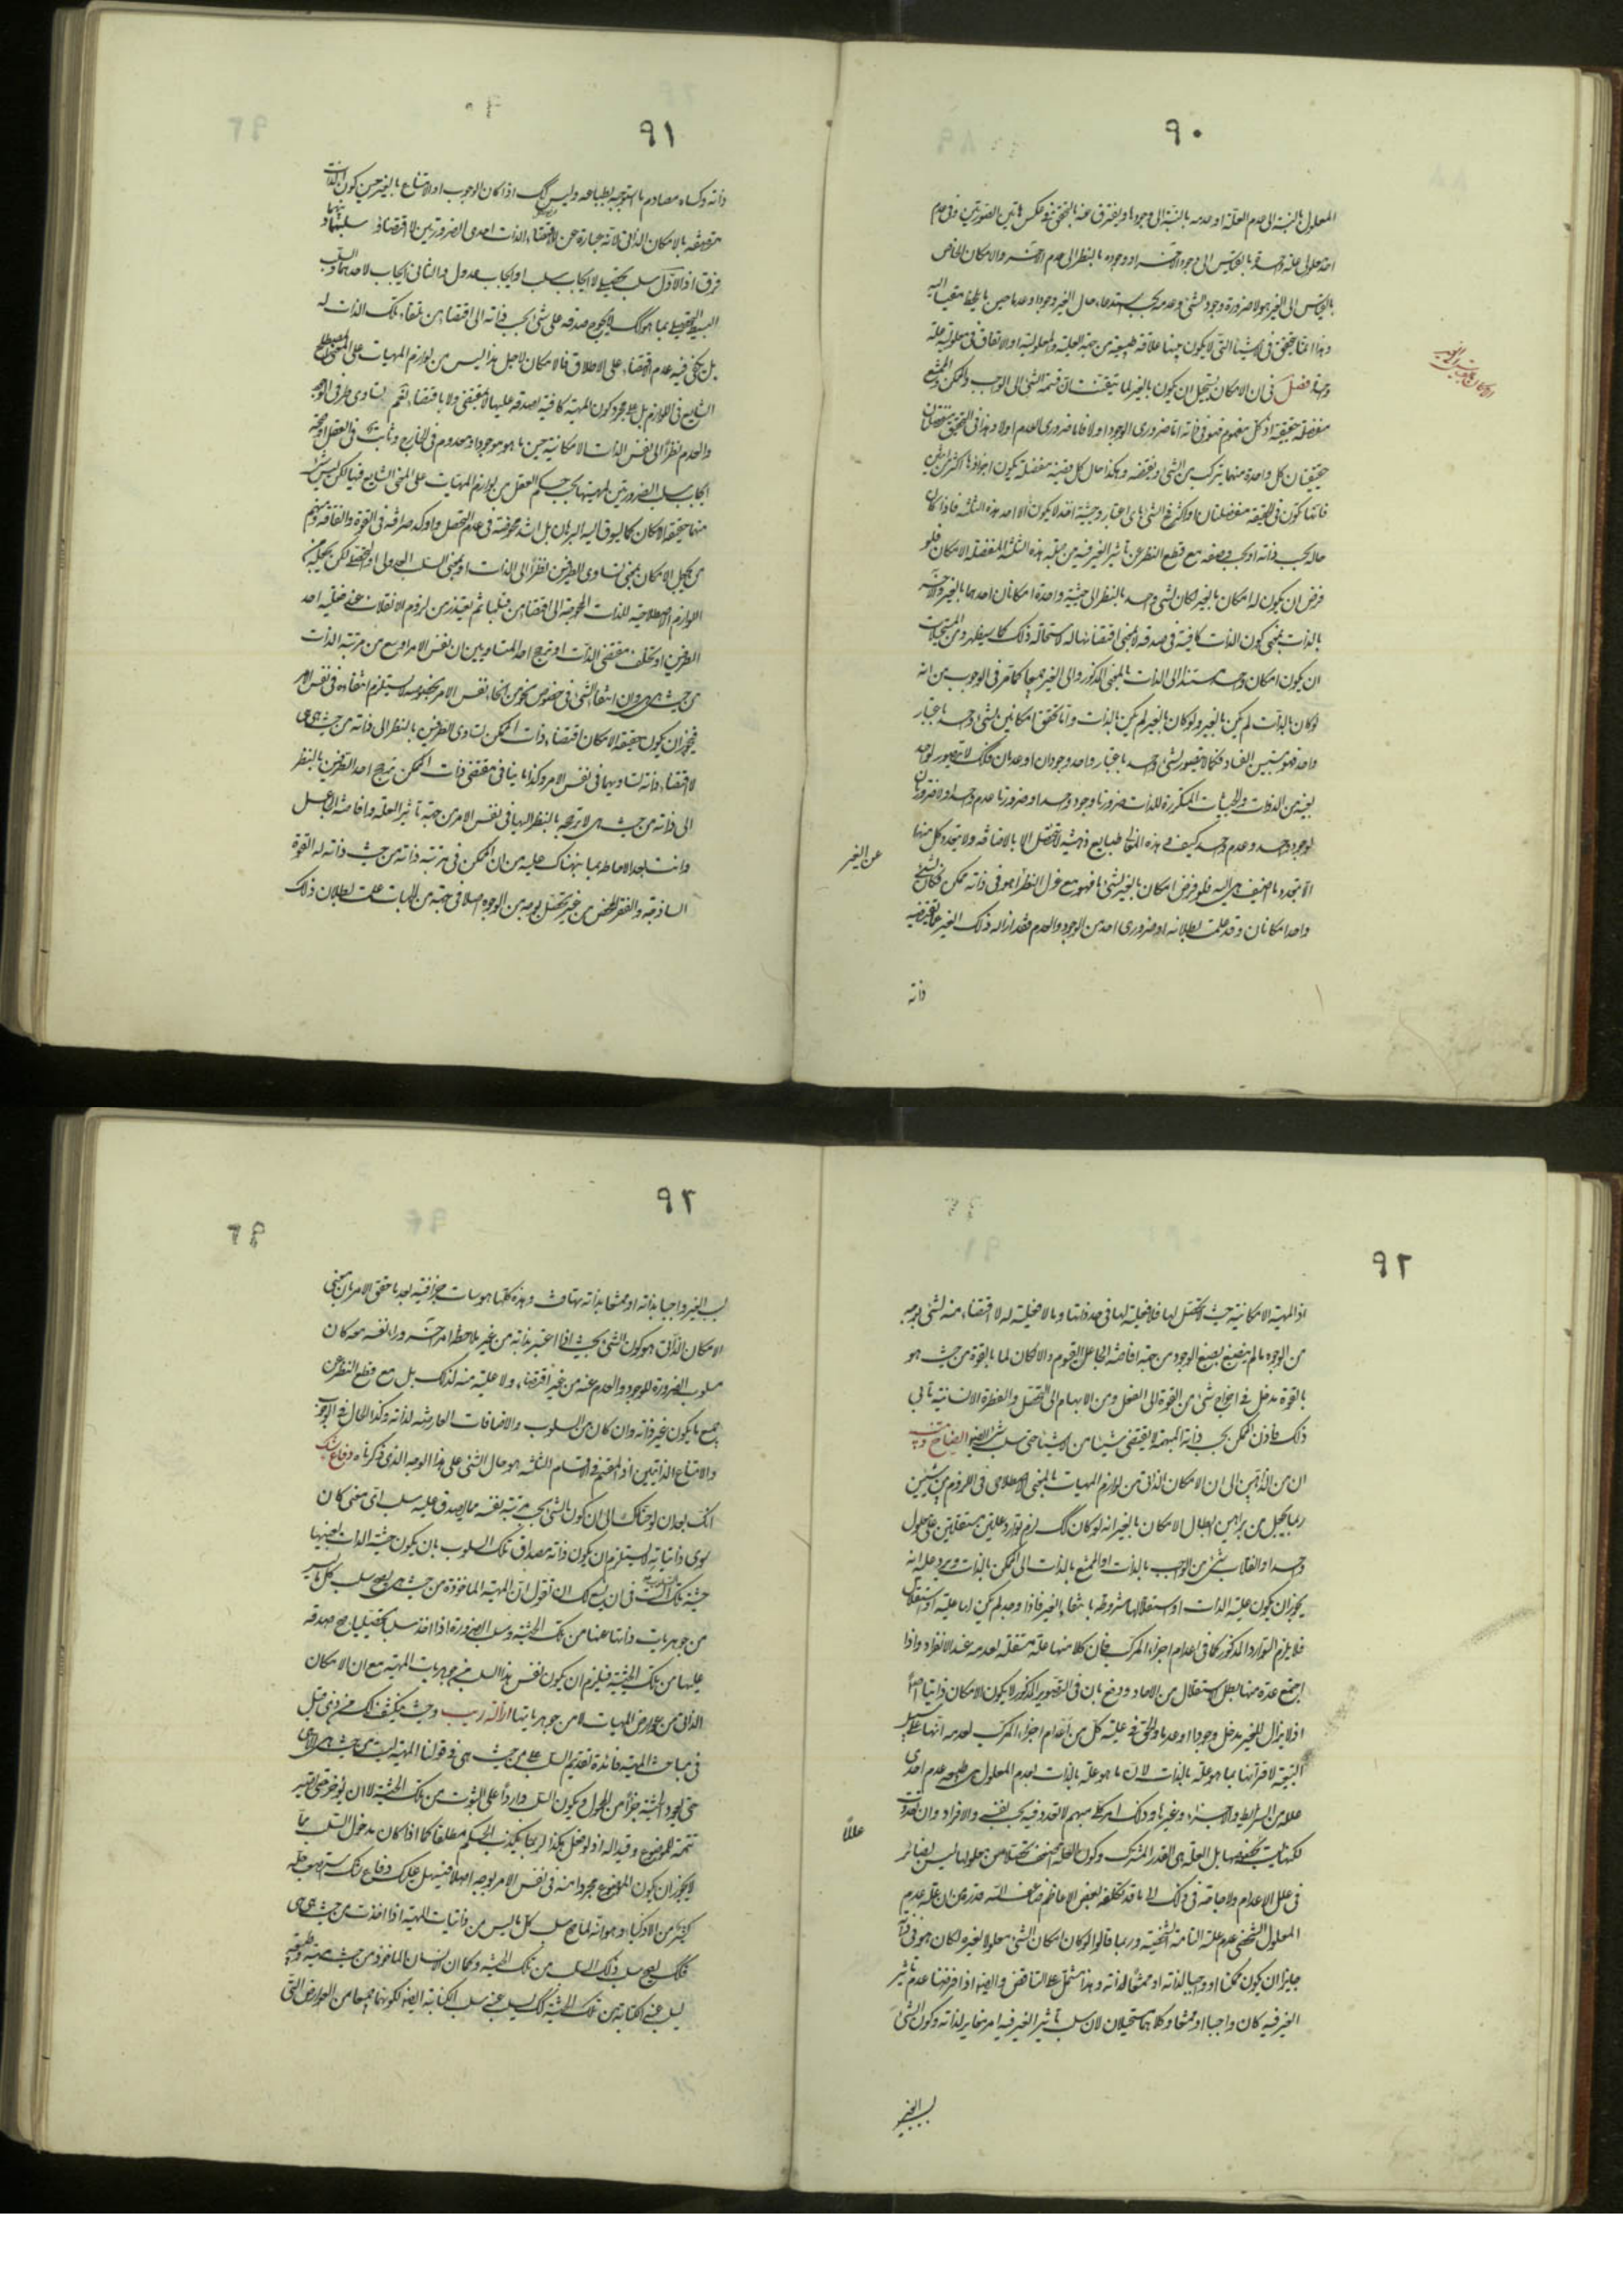 ٩٠
المعلول بالنسبة الى عدم العلة او عدمه بالنسبة الى وجودها ويفترق عنه بالتحقق في عكس هاتين الصورتين وفي عدم
احد معلولي علة واحدة بالقياس الى وجود الآخر او وجوده بالنظر الى عدم الآخر والامكان الخاص
بالقياس الى الغير هو لا ضرورة وجود الشئ وعدمه بحسب استدعاء حال الغير وجودا وعدما حين ما يلحظ مقيسا اليه
وهذا انما يتحقق في الاشياء التي لا يكون بينها علاقة طبيعية من جهة العلية والمعلولية او الاتفاق في معلولية علة
واحدة فصل في ان الامكان يستحيل ان يكون بالغير لما تيقنت ان قسمة الشئ الى الواجب والممكن والممتنع
منفصلة حقيقية اذ كل مفهوم فهو في ذاته اما ضروري الوجود او لا فاما ضروري العدم او لا وهذا في التحقيق منفصلتان
حقيقيتان كل واحدة منهما يتركب من الشئ ونقيضه وهكذا حال كل قضية منفصلة يكون اجزاؤها اكثر من اثنين
فانها تكون في الحقيقة منفصلتان او اكثر فالشئ باى اعتبار وحيثية اخذ لا يكون الا احد هذه الثلثة فاذا كان
حاله بحسب ذاته او بحسب وصفه مع قطع النظر عن تأثير الغير فيه من جملة هذه الثلثة المنفصلة الامكان فلو
فرض ان يكون له امكان بالغير لكان لشئ واحد بالنظر الى حيثية واحدة امكانان احدهما بالغير والآخر
بالذات بمعنى كون الذات كافية في صدقه لا بمعنى اقتضائها له لاستحالة ذلك كما سيظهر ومن المستحيلات
ان يكون امكان واحد مستندا الى الذات بالمعنى المذكور والى الغير جميعا كما مر في الوجوب من انه
لو كان بالذات لم يكن بالغير ولو كان بالغير لم يكن بالذات واما تحقق امكانين لشئ واحد باعتبار
واحد فهو بين الفساد فكما لا يتصور لشئ واحد باعتبار واحد وجودان او عدمان فكذلك لا يتصور لواحد
بعينه من الذوات والحيثيات المكررة للذات ضرورتا وجود واحد او ضرورتا عدم واحد او لا ضرورتان
لوجود واحد وعدم واحد كيف وهذه المعاني طبايع ذهنية لا تحصل الا بالاضافة ولا يتعدد كل منها
الا بتعدد ما اضيف هى اليه فلو فرض امكان بالغير لشئ ما فهو مع عزل النظر اهو في ذاته ممكن فكان لشئ
واحد امكانان وقد علمت بطلانه او ضروري احد من الوجود والعدم فقد ازاله ذلك الغير عما يقتضيه
ذاته
عن الغير
٩١
ذاته وكساه مصادم ما استوجبه بطباعه وليس كذلك اذا كان الوجوب او الامتناع بالغير حين كون الذات
متصفة بالامكان الذاتي لانه عبارة عن لا اقتضاء الذات احدى الضرورتين لا اقتضاؤ سلبهما وبينهما
فرق اذ الاول سلب تحصيلي لا ايجاب سلب او ايجاب عدول والثاني ايجاب لاحدهما والسلب
البسيط التحصيلي بما هو كذلك لا يحوج صدقه على شئ بحسب ذاته الى اقتضاء من تلقاء تلك الذات له
بل يكفي فيه عدم اقتضاء على الاطلاق فالامكان لاجل هذا ليس من لوازم المهيات على المعنى المصطلح
الشايع في اللوازم بل على مجرد كون المهية كافية لصدقه عليها لا بمقتضى ولا باقتضاء نعم تساوى طرفي الوجود
والعدم نظرا الى نفس الذات الامكانية حين ما هو موجود او معدوم في الخارج وثابت في العقل او صحة
ايجاب سلب الضرورتين لمهيتها بحسب حكم العقل من لوازم المهيات على المعنى الشايع فيها لكن ليس شئ
منها حقيقة الامكان كما يسوق اليه البرهان بل اشد محوضة في عدم التحصل واوكد صرافة في القوة والفاقة ومنهم
من يجعل الامكان بمعنى تساوى الطرفين نظرا الى الذات او بمعنى السلب العدولى او التحصيلى لكن يجعله من
اللوازم الاصطلاحية للذات المحوجة الى اقتضاء من قبلها ثم يعتذر من لزوم الانقلاب عند فعلية احد
الطرفين او تخلف مقتضى الذات او ترجح احد المتساويين بان نفس الامر اوسع من مرتبة الذات
من حيث هى هى وان انتفاء الشئ في خصوص نحو من انحاء نفس الامر بخصوصه لا يستلزم انتفاءه في نفس الامر
فيجوز ان يكون حقيقة الامكان اقتضاء ذات الممكن تساوى الطرفين بالنظر الى ذاته من حيث هى هى
لا اقتضاء ذاته تساويهما في نفس الامر وكذا ما ينافي مقتضى ذات الممكن ترجح احد الطرفين بالنظر
الى ذاته من حيث هى لا ترجحه بالنظر اليها في نفس الامر من جهة تأثير العلة وافاضة الجاعل
وانت بعد الاحاطة بما نبهناك عليه من ان الممكن في مرتبة ذاته من حيث ذاته له القوة
الساذجة والفقر المحض من غير تحصل بوجه من الوجوه اصلا في جهة من الجهات علمت بطلان ذلك
٩٢
اذ المهية الامكانية حيث لا تحصل لها فلا فعلية لها في حد ذاتها وما لا فعلية له لا اقتضاء منه لشئ بوجه
من الوجوه ما لم ينصبغ بصبغ الوجود من جهة افاضة الجاعل القيوم والا لكان لما بالقوة من حيث هو
بالقوة مدخل في اخراج شئ من القوة الى الفعل ومن الابهام الى التحصل والفطرة الانسانية تأبى
ذلك فاذن الممكن بحسب ذاته المبهمة لا يقتضى شيئا من الاشياء حتى سلب شئ
ان من الذاهبين الى ان الامكان الذاتي من لوازم المهيات بالمعنى الاصطلاحي في اللزوم بين شيئين
ربما يجعل من براهين ابطال الامكان بالغير انه لو كان كذلك لزم توارد علتين مستقلتين على معلول
واحد او انقلاب شئ من الواجب بالذات او الممتنع بالذات الى الممكن بالذات ويرد عليه انه
يجوز ان يكون علية الذات او استقلالها مشروطة بانتفاء الغير فاذا وجد لم يكن لها علية او استقلال
فلا يلزم التوارد المذكور كما في اعدام اجزاء المركب فان كلا منها علة مستقلة لعدمه عند الانفراد واذا
اجتمع عدة منها بطل الاستقلال من الآحاد ودفع بان في التصوير المذكور لا يكون الامكان ذاتيا اصلا
اذ لا يزال للغير مدخل وجودا او عدما والحق في علية كل من اعدام اجزاء المركب لعدمه انها على سبيل
التبعية لاقترانها بما هو علة بالذات لان ما هو علة بالذات لعدم المعلول هى طبيعة عدم احدى
علله من الشرايط والاجزاء وغيرها وذلك امر كلى مبهم لا تعدد فيه بحسب نفسه والافراد وان تعددت
لكنها ليست بخصوصها بل العلة هى القدر المشترك وكون العلة اضعف تحصلا من معلولها ليس بضائر
في علل الاعدام ولا حاجة في ذلك الى ما قد تكلفه بعض الاعاظم ضاعف الله قدره من ان علة عدم
المعلول الشخصي عدم علته التامة الشخصية وربما قالوا لو كان امكان الشئ معلولا لغيره لكان هو في ذاته
جايزا ان يكون ممكنا او واجبا لذاته او ممتنعا لذاته وهذا مشتمل على التناقض وايضا اذا فرضنا عدم تأثير
الغير فيه كان واجبا او ممتنعا وكلاهما مستحيلان لان سلب تأثير الغير فيه امر مغاير لذاته وكون الشئ
بسبب الغير
عللا
٩٣
بسبب الغير واجبا بذاته او ممتنعا بذاته تهافت وهذه كلها هوسات جزافية بعد ما حقق الامر بان معنى
الامكان الذاتي هو كون الشئ بحيث اذا اعتبر بذاته من غير ملاحظة امر آخر وراء نفسه معه كان
مسلوب الضرورة للوجود والعدم عنه من غير اقتضاء ولا علية منه لذلك بل مع قطع النظر عن
جميع ما يكون غير ذاته وان كان من السلوب والاضافات العارضة لذاته وكذا الحال في الوجوب
والامتناع الذاتيين اذ المقسم في الاقسام الثلثة هو حال الشئ على هذا الوجه الذى ذكرناه دفاع شك
انك بعد ان لوحناك الى ان كون الشئ بحسب مرتبة نفسه مما يصدق عليه سلب اى معنى كان
سوى ذاتياته لا يستلزم ان يكون ذاته مصداق تلك السلوب بان يكون حيثية الذات بعينها
حيثية تلك السلوب في ان يسع لك ان تقول ان المهية المأخوذة من حيث هى يصح سلب كل ما ليس
من جوهريات ذاتها عنها من تلك الحيثية وسلب الضرورة اذا اخذ سلبا تحصيليا صح صدقه
عليها من تلك الحيثية فيلزم ان يكون نفس هذا السلب من جوهريات المهية مع ان الامكان
الذاتي من عوارض المهيات لا من جوهرياتها ازالة ريب وحيث ينكشف لك من ذى قبل
في مباحث المهية فائدة تقديم السلب على من حيث هى في قولنا المهية ليست من حيث هى الا هى
حتى يعود الحيثية جزءا من المحمول ويكون السلب واردا على الثبوت من تلك الحيثية لا ان يؤخر حتى يصير
تتمة للموضوع وقيدا له اذ لو فعل هكذا لربما يكذب الحكم مطلقا كما اذا كان مدخول السلب مما
لا يجوز ان يكون الموضوع مجردا عنه في نفس الامر بوجه اصلا فيسهل عليك دفاع شك استصعب حله
كثير من الاذكياء وهو انه لما صح سلب كل ما ليس من ذاتيات المهية اذا اخذت من حيث هى هى
فكذلك يصح سلب ذلك السلب من تلك الحيثية وكما ان الانسان المأخوذ من حيث هيئة طبيعية
ليسلب عنه الكتابة من تلك الحيثية كذلك يسلب عنه سلب الكتابة ايضا لكونهما جميعا من العوارض التى